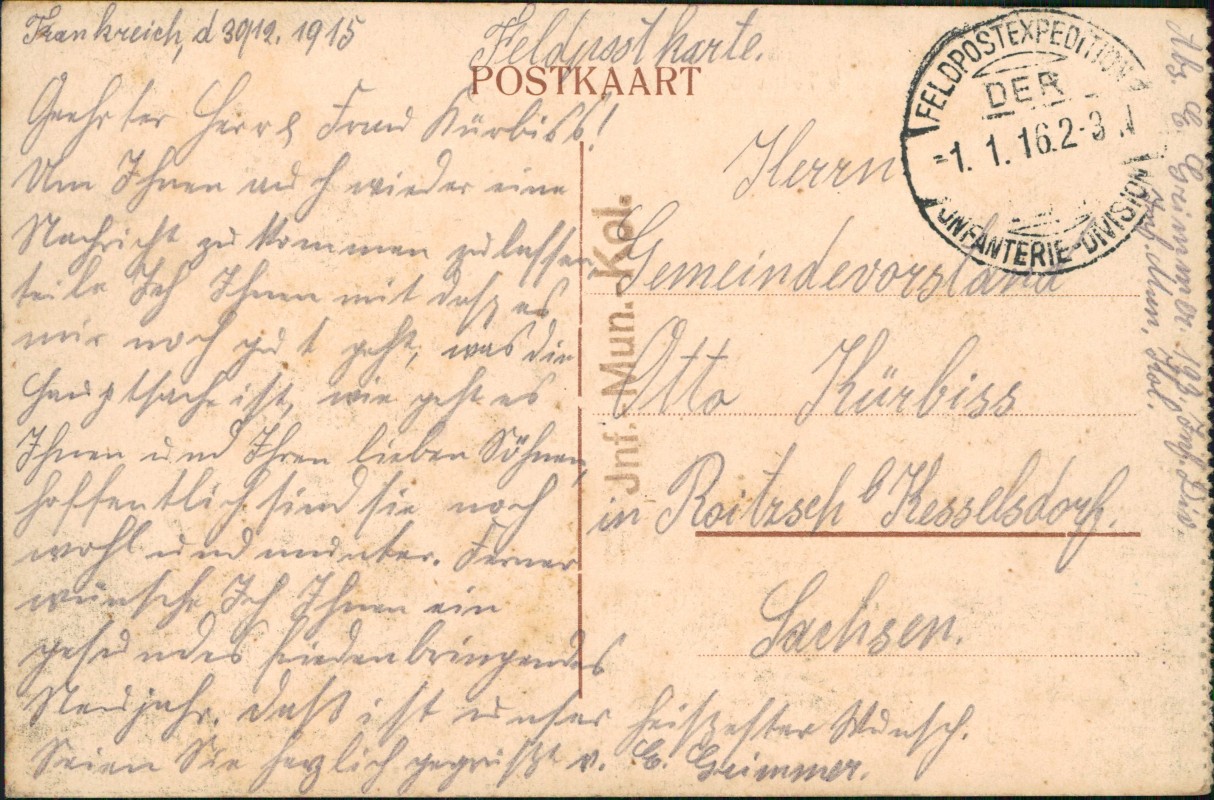 Frankreich, d 30/12. 1915
Feldpostkarte.
POSTKAART
Geehrter Herr & Frau Kürbiss!
Um Ihnen auch wieder eine
Nachricht zu kommen zu lassen
teile Ich Ihnen mit dass es
mir noch gut geht, was die
Hauptsache ist, wie geht es
Ihnen und Ihren lieben Söhnen,
hoffentlich sind sie noch
wohl und munter. Ferner
wünsche Ich Ihnen ein
gesundes friedenbringendes
Neujahr. Dass ist unser heissester Wunsch.
Seien Sie herzlich gegrüßt v. E. Greimmer.
Herrn
Gemeindevorstand
Otto Kürbiss
in Roitzsch b Kesselsdorf.
Sachsen.
Jnf.-Mun.-Kol.
FELDPOSTEXPEDITION
DER
-1. 1. 16. 2-3 N
INFANTERIE-DIVISION
Abs. E. Greimmer. 123. Inf. Div.
Inf. Mun. Kol.